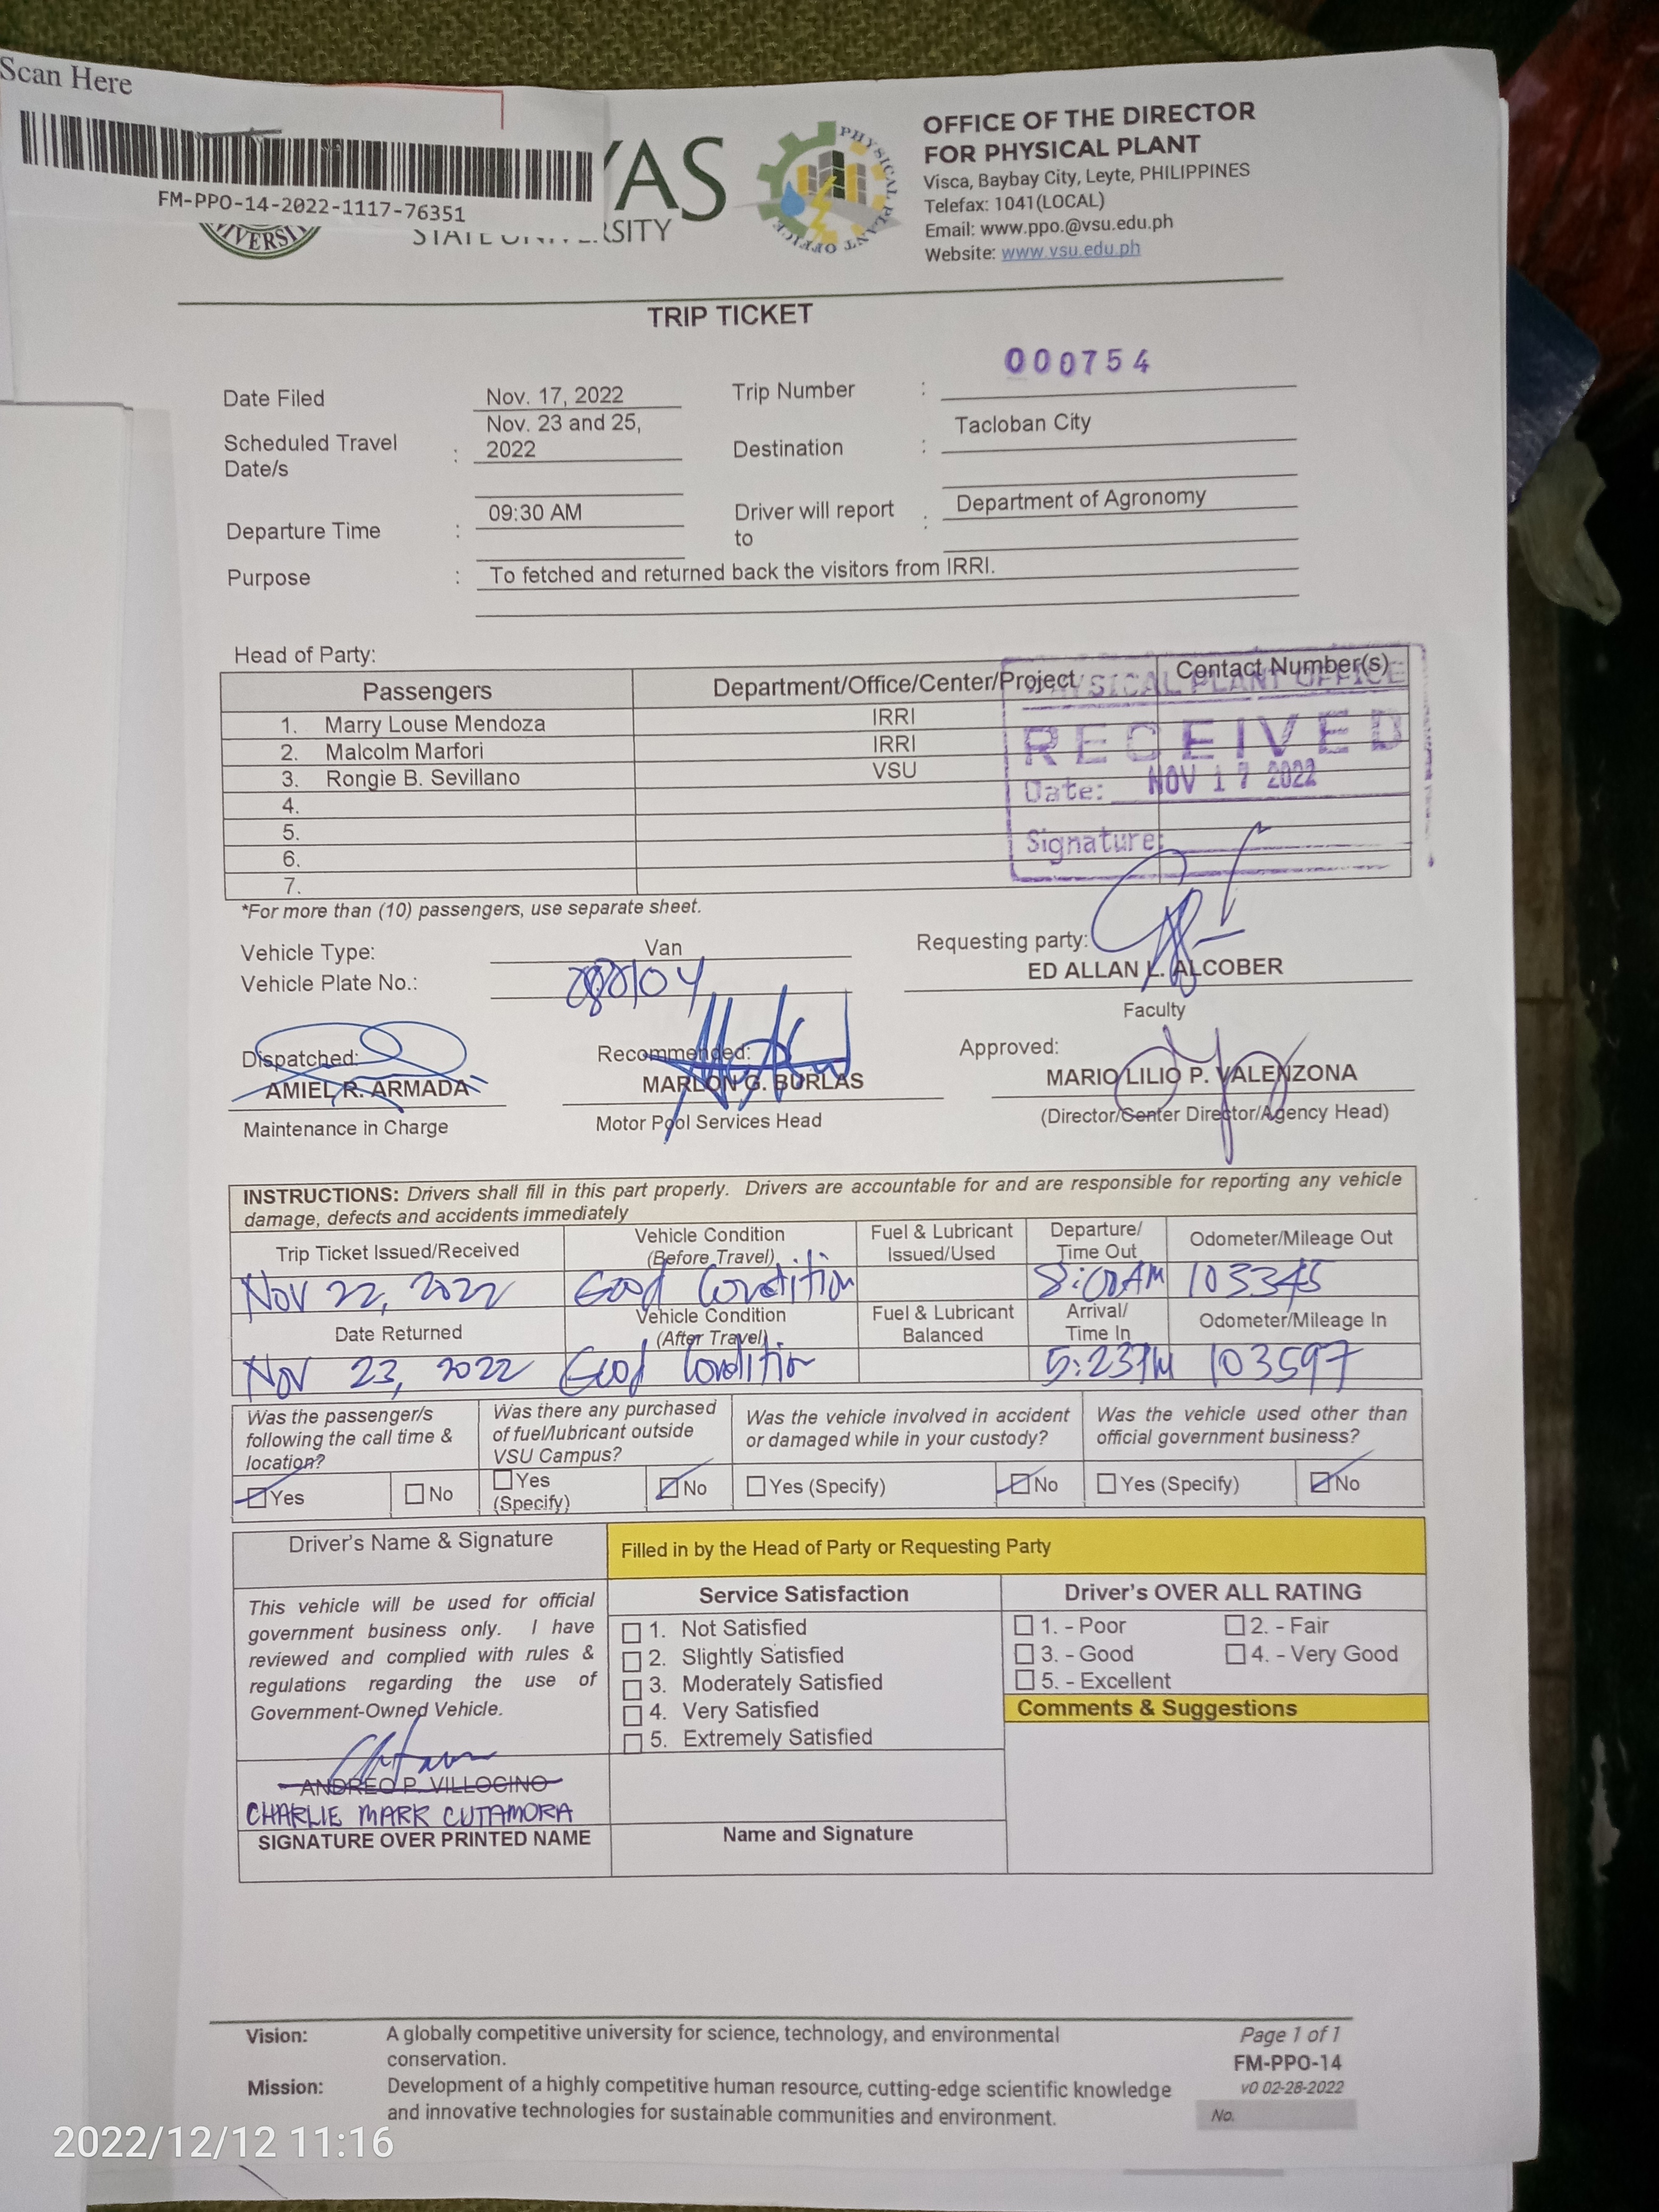 Scan Here
FM-PPO-14-2022-1117-76351
YAS
STATE UNIVERSITY
PHYSICAL PLANT OFFICE
OFFICE OF THE DIRECTOR
FOR PHYSICAL PLANT
Visca, Baybay City, Leyte, PHILIPPINES
Telefax: 1041(LOCAL)
Email: www.ppo.@vsu.edu.ph
Website: www.vsu.edu.ph
TRIP TICKET
000754
Date Filed Nov. 17, 2022 Trip Number :
Scheduled Travel Date/s : Nov. 23 and 25, 2022 Destination : Tacloban City
Departure Time : 09:30 AM Driver will report to : Department of Agronomy
Purpose : To fetched and returned back the visitors from IRRI.
Head of Party:
Passengers Department/Office/Center/Project Contact Number(s)
1. Marry Louse Mendoza IRRI
2. Malcolm Marfori IRRI
3. Rongie B. Sevillano VSU
4.
5.
6.
7.
PHYSICAL PLANT OFFICE
RECEIVED
Date: NOV 17 2022
Signature:
*For more than (10) passengers, use separate sheet.
Vehicle Type: Van
Vehicle Plate No.:
Requesting party:
ED ALLAN L. ALCOBER
Faculty
Dispatched: Recommended: Approved:
AMIEL R. ARMADA MARLON G. BURLAS MARIO LILIO P. VALENZONA
Maintenance in Charge Motor Pool Services Head (Director/Center Director/Agency Head)
INSTRUCTIONS: Drivers shall fill in this part properly. Drivers are accountable for and are responsible for reporting any vehicle
damage, defects and accidents immediately
Trip Ticket Issued/Received Vehicle Condition (Before Travel) Fuel & Lubricant Issued/Used Departure/ Time Out Odometer/Mileage Out
Nov 22, 2022 Good Condition 8:00AM 103345
Date Returned Vehicle Condition (After Travel) Fuel & Lubricant Balanced Arrival/ Time In Odometer/Mileage In
Nov 23, 2022 Good Condition 5:23PM 103597
Was the passenger/s following the call time & location?
Yes No
Was there any purchased of fuel/lubricant outside VSU Campus?
Yes (Specify) No
Was the vehicle involved in accident or damaged while in your custody?
Yes (Specify) No
Was the vehicle used other than official government business?
Yes (Specify) No
Driver's Name & Signature
Filled in by the Head of Party or Requesting Party
This vehicle will be used for official
government business only. I have
reviewed and complied with rules &
regulations regarding the use of
Government-Owned Vehicle.
ANDREO P. VILLOCINO
CHARLIE MARK CUTAMORA
SIGNATURE OVER PRINTED NAME
Service Satisfaction
1. Not Satisfied
2. Slightly Satisfied
3. Moderately Satisfied
4. Very Satisfied
5. Extremely Satisfied
Name and Signature
Driver's OVER ALL RATING
1. - Poor 2. - Fair
3. - Good 4. - Very Good
5. - Excellent
Comments & Suggestions
Vision: A globally competitive university for science, technology, and environmental
conservation.
Mission: Development of a highly competitive human resource, cutting-edge scientific knowledge
and innovative technologies for sustainable communities and environment.
Page 1 of 1
FM-PPO-14
v0 02-28-2022
No.
2022/12/12 11:16